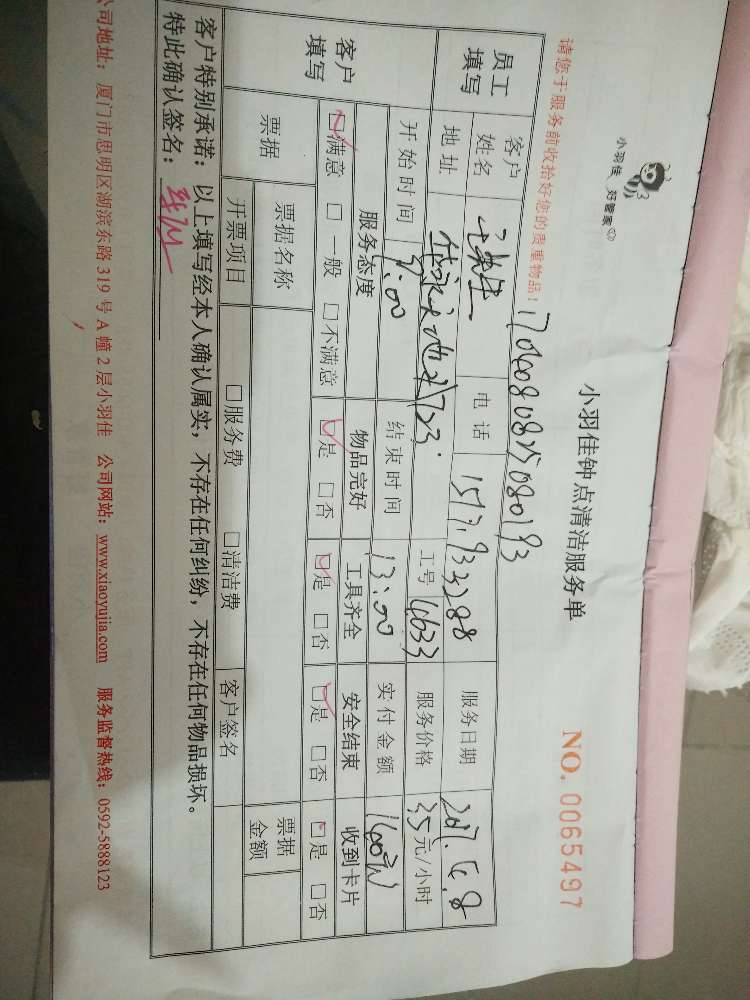 小羽佳 好管家
小羽佳钟点清洁服务单
NO. 0065497
请您于服务前收拾好您的贵重物品！
1706080825080193
员工填写 客户姓名 先生 电话 服务日期 2017.6.8
地址 工号 4633 服务价格 35元/小时
客户填写 开始时间 9:00 结束时间 13:00 实付金额 160元
服务态度 物品完好 工具齐全 安全结束 收到卡片
☑满意 □一般 □不满意 ☑是 □否 ☑是 □否 ☑是 □否 ☑是 □否
票据 票据名称 客户签名 票据金额
开票项目 □服务费 □清洁费
客户特别承诺：以上填写经本人确认属实，不存在任何纠纷，不存在任何物品损坏。
特此确认签名：
公司地址：厦门市思明区湖滨东路319号A幢2层小羽佳 公司网站：www.xiaoyujia.com 服务监督热线：0592-5888123